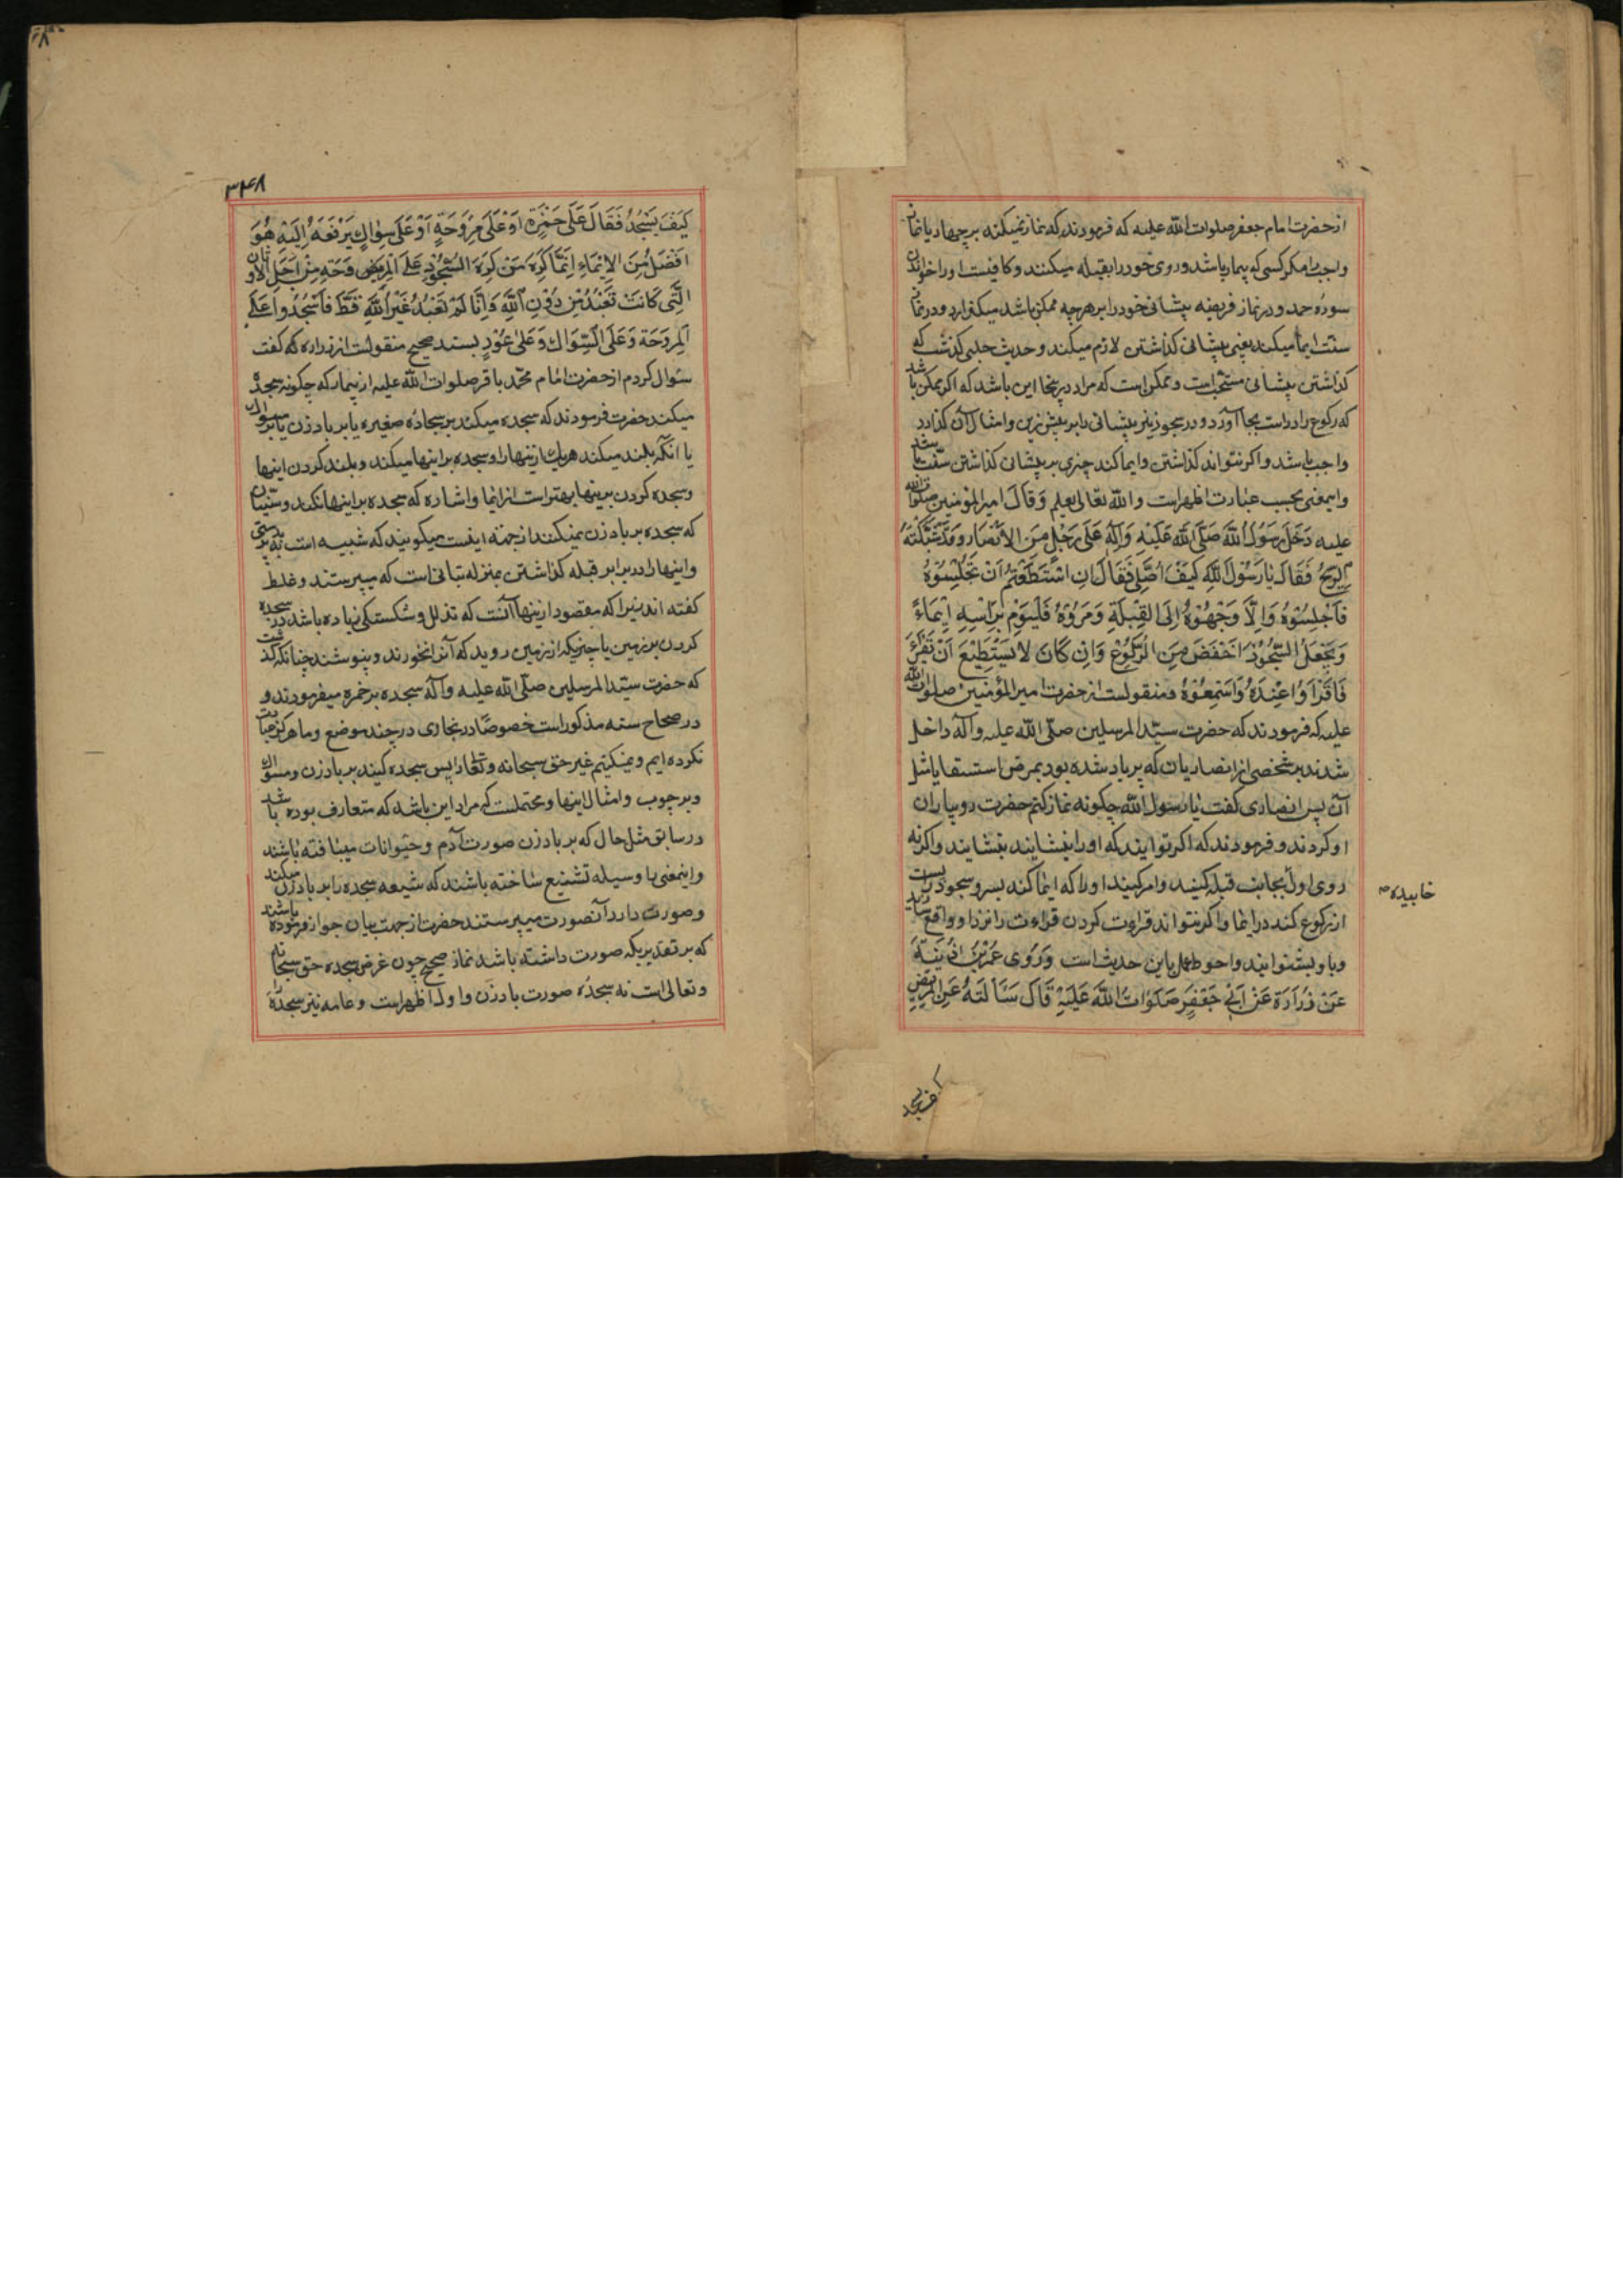 از حضرت امام جعفر صلوات الله علیه که فرمودند که نماز نمیکند بر چهار پا نماز
واجب را مکر کسی که بیمار باشد و روی خود را بقبله میکنند و کافیست او را خواندن
سوره حمد و در نماز فریضه پیشانی خود را بر هر چه ممکن باشد میکذارد و در نماز
سنت ایما میکند یعنی پیشانی کذاشتن لازم میکند و حدیث حلبی کذشت که
کذاشتن پیشانی مستحبّ است و ممکن است که مراد در ینجا این باشد که اکر ممکن باشد
که رکوع را در است بجا آورد و در سجود نیز پیشانی را بر پیش زین و امثال آن کذارد
واجب باشد و اکر نتواند کذاشتن و ایما کند چیزی بر پیشانی کذاشتن سنّت باشد
و این معنی بحسب عبارت اظهر است و الله تعالی یعلم وَقَالَ امیر المؤمنین صلوات الله
علیه دَخَلَ رَسُولُ اللهِ صَلَّی اللهُ عَلَیْهِ وَآلِهِ عَلَی رَجُلٍ مِنَ الاَنْصَارِ وَقَدْ شَبَّکَتْهُ
الرِّیحُ فَقَالَ یَا رَسُولَ اللهِ کَیْفَ اُصَلِّی فَقَالَ اِنِ اسْتَطَعْتُمْ اَنْ تُجْلِسُوهُ
فَاَجْلِسُوهُ وَاِلَّا وَجِّهُوهُ اِلَی القِبْلَةِ وَمُرُوهُ فَلْیُومِ بِرَأْسِهِ اِیْمَاءً
وَیَجْعَلُ السُّجُودَ اَخْفَضَ مِنَ الرُّکُوعِ وَاِنْ کَانَ لَا یَسْتَطِیعُ اَنْ یَقْرَءَ
فَاقْرَاُوا عِنْدَهُ وَاَسْمِعُوهُ و منقولست از حضرت امیر المؤمنین صلوات الله
علیه که فرمودند که حضرت سیّد المرسلین صلّی الله علیه و آله داخل
شدند بر شخصی از انصاریان که پر باد شده بود بمرض استسقا یا شل
آن پس انصاری کفت یا رسول الله چکونه نماز کنم حضرت رو بیاران
او کردند و فرمودند که اکر توانید که او را بنشایند بنشایند و اکر نه
روی او را بجانب قبله کنید و امر کنید او را که ایما کند بسر و سجود را پست تر
خابیده
از رکوع کند در ایما و اکر نتواند قراءت کردن قراءت را نزد او واقع سازید
و باو بشنوانید و احوط عمل باین حدیث است وَرَوَی عُمَرُ بْنُ اُذَیْنَةَ
عَنْ زُرَارَةَ عَنْ اَبِی جَعْفَرٍ صَلَوَاتُ اللهِ عَلَیْهِ قَالَ سَأَلْتُهُ عَنِ الْمَرِیضِ
کیف یسجد
۳۴۸
کَیْفَ یَسْجُدُ فَقَالَ عَلَی خُمْرَةٍ اَوْ عَلَی مِرْوَحَةٍ اَوْ عَلَی سِوَاكٍ یَرْفَعُهُ اِلَیْهِ هُوَ
اَفْضَلُ مِنَ الاِیْمَاءِ اِنَّمَا کَرِهَ مَنْ کَرِهَ السُّجُودَ عَلَی الْمِرْوَحَةِ مِنْ اَجْلِ الاَوْثَانِ
الَّتِی کَانَتْ تُعْبَدُ مِنْ دُونِ اللهِ وَاِنَّا لَمْ نَعْبُدْ غَیْرَ اللهِ قَطُّ فَاسْجُدُوا عَلَی
الْمِرْوَحَةِ وَعَلَی السِّوَاكِ وَعَلَی عُوْدٍ بسند صحیح منقولست از زراره که کفت
سؤال کردم از حضرت امام محمّد باقر صلوات الله علیه از بیمار که چکونه سجده
میکند حضرت فرمودند که سجده میکند بر سجاده صغیره یا بر باد زن یا بر مسواك
یا انکه بلند میکند هر یك ازینها را و سجده بر اینها میکند و بلند کردن اینها
و سجده کردن برینها بهتر است از ایما و اشاره که سجده بر اینها نکند و سنّیان
که سجده بر باد زن نمیکنند از جهة اینست میکویند که شبیه است به بت پرستی
و اینها را در برابر قبله کذاشتن بمنزله بتانی است که میپرستند و غلط
کفته اند زیرا که مقصود ازینها آنست که تذلل و شکستکی زیاده باشد در سجده
کردن بر زمین یا چیزیکه از زمین روید که آنرا نخورند و نپوشند چنانکه کذشت
که حضرت سیّد المرسلین صلّی الله علیه و آله سجده بر خمره میفرمودند و
در صحاح سته مذکور است خصوصًا در بخاری در چند موضع و ما هرکز عبادت
نکرده ایم و نمیکنیم غیر حق سبحانه و تعالی را پس سجده کنید بر باد زن و مسواك
و بر چوب و امثال اینها و محتملست که مراد این باشد که متعارف بوده باشد
در سابق مثل حال که بر باد زن صورت آدم و حیوانات میبافته باشند
و اینمعنی را وسیله تشنیع ساخته باشند که شیعه سجده را بر باد زن میکنند
و صورت دارد آنصورت میپرستند حضرت از جهت بیان جواز فرموده باشند
که بر تقدیریکه صورت داشته باشد نماز صحیح چون غرض سجده حق سبحانه
و تعالی است نه سجده صورت باد زن و اول اظهر است و عامه نیز سجده را